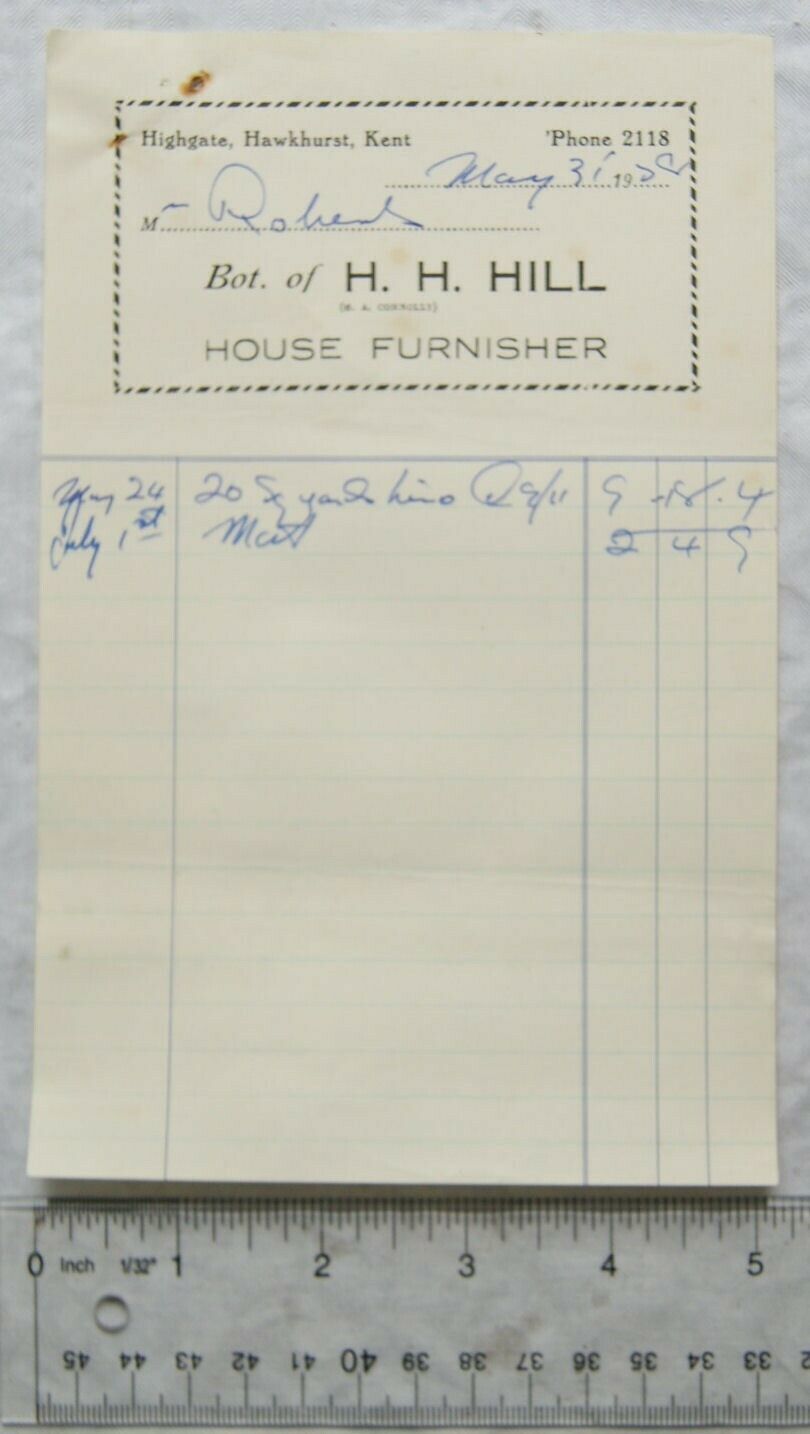 Highgate, Hawkhurst, Kent 'Phone 2118
May 31 19
M
Bot. of H. H. HILL
(M. A. CONNOLLY)
HOUSE FURNISHER
May 24 20 Sq yards Lino @ 9/11 9 - 18 . 4
July 1st Matt 2 4 9
0 Inch 1/32" 1 2 3 4 5
45 44 43 42 41 40 39 38 37 36 35 34 33